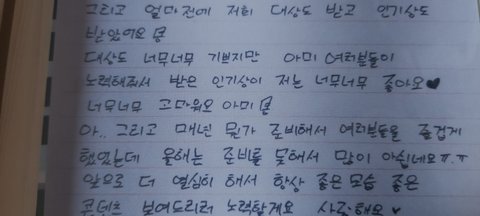 그리고 얼마전에 저희 대상도 받고 인기상도
받았어요
대상도 너무너무 기쁘지만 아미 여러분들이
노력해줘서 받은 인기상이 저는 너무너무 좋아요♥
너무너무 고마워요 아미
아.. 그리고 매년 뭔가 준비해서 여러분들을 즐겁게
했었는데 올해는 준비를 못해서 많이 아쉽네요ㅠ.ㅠ
앞으로 더 열심히 해서 항상 좋은 모습 좋은
콘텐츠 보여드리려 노력할게요 사랑해요 ♥